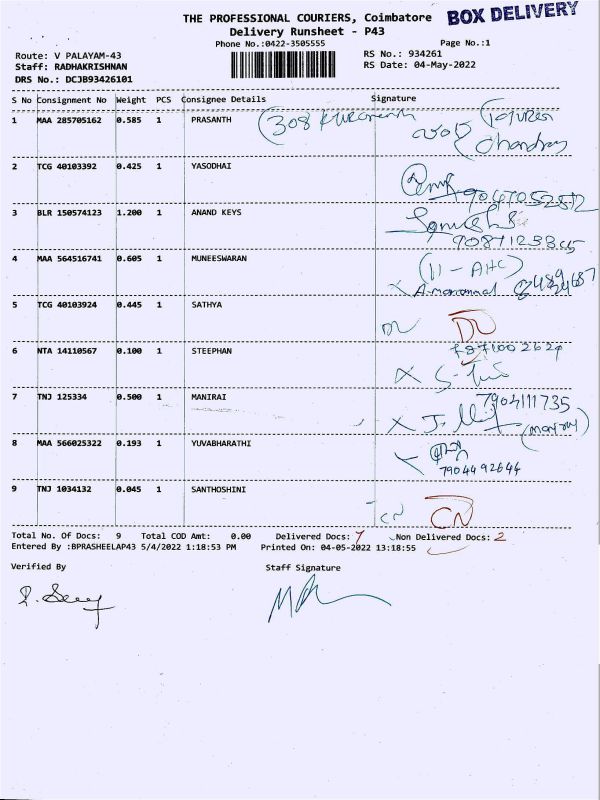 THE PROFESSIONAL COURIERS, Coimbatore
BOX DELIVERY
Delivery Runsheet - P43
Phone No.:0422-3505555
Page No.:1
Route: V PALAYAM-43
RS No.: 934261
Staff: RADHAKRISHNAN
RS Date: 04-May-2022
DRS No.: DCJB93426101
S No Consignment No Weight PCS Consignee Details Signature
1 MAA 285705162 0.585 1 PRASANTH
308
2 TCG 40103392 0.425 1 YASODHAI
3 BLR 150574123 1.200 1 ANAND KEYS
4 MAA 564516741 0.605 1 MUNEESWARAN
(11 - AHC)
5 TCG 40103924 0.445 1 SATHYA
DL DL
6 NTA 14110567 0.100 1 STEEPHAN
7 TNJ 125334 0.500 1 MANIRAI
7904111735
8 MAA 566025322 0.193 1 YUVABHARATHI
7904492644
9 TNJ 1034132 0.045 1 SANTHOSHINI
CN CN
Total No. Of Docs: 9 Total COD Amt: 0.00 Delivered Docs: 7 Non Delivered Docs: 2
Entered By :BPRASHEELAP43 5/4/2022 1:18:53 PM Printed On: 04-05-2022 13:18:55
Verified By Staff Signature